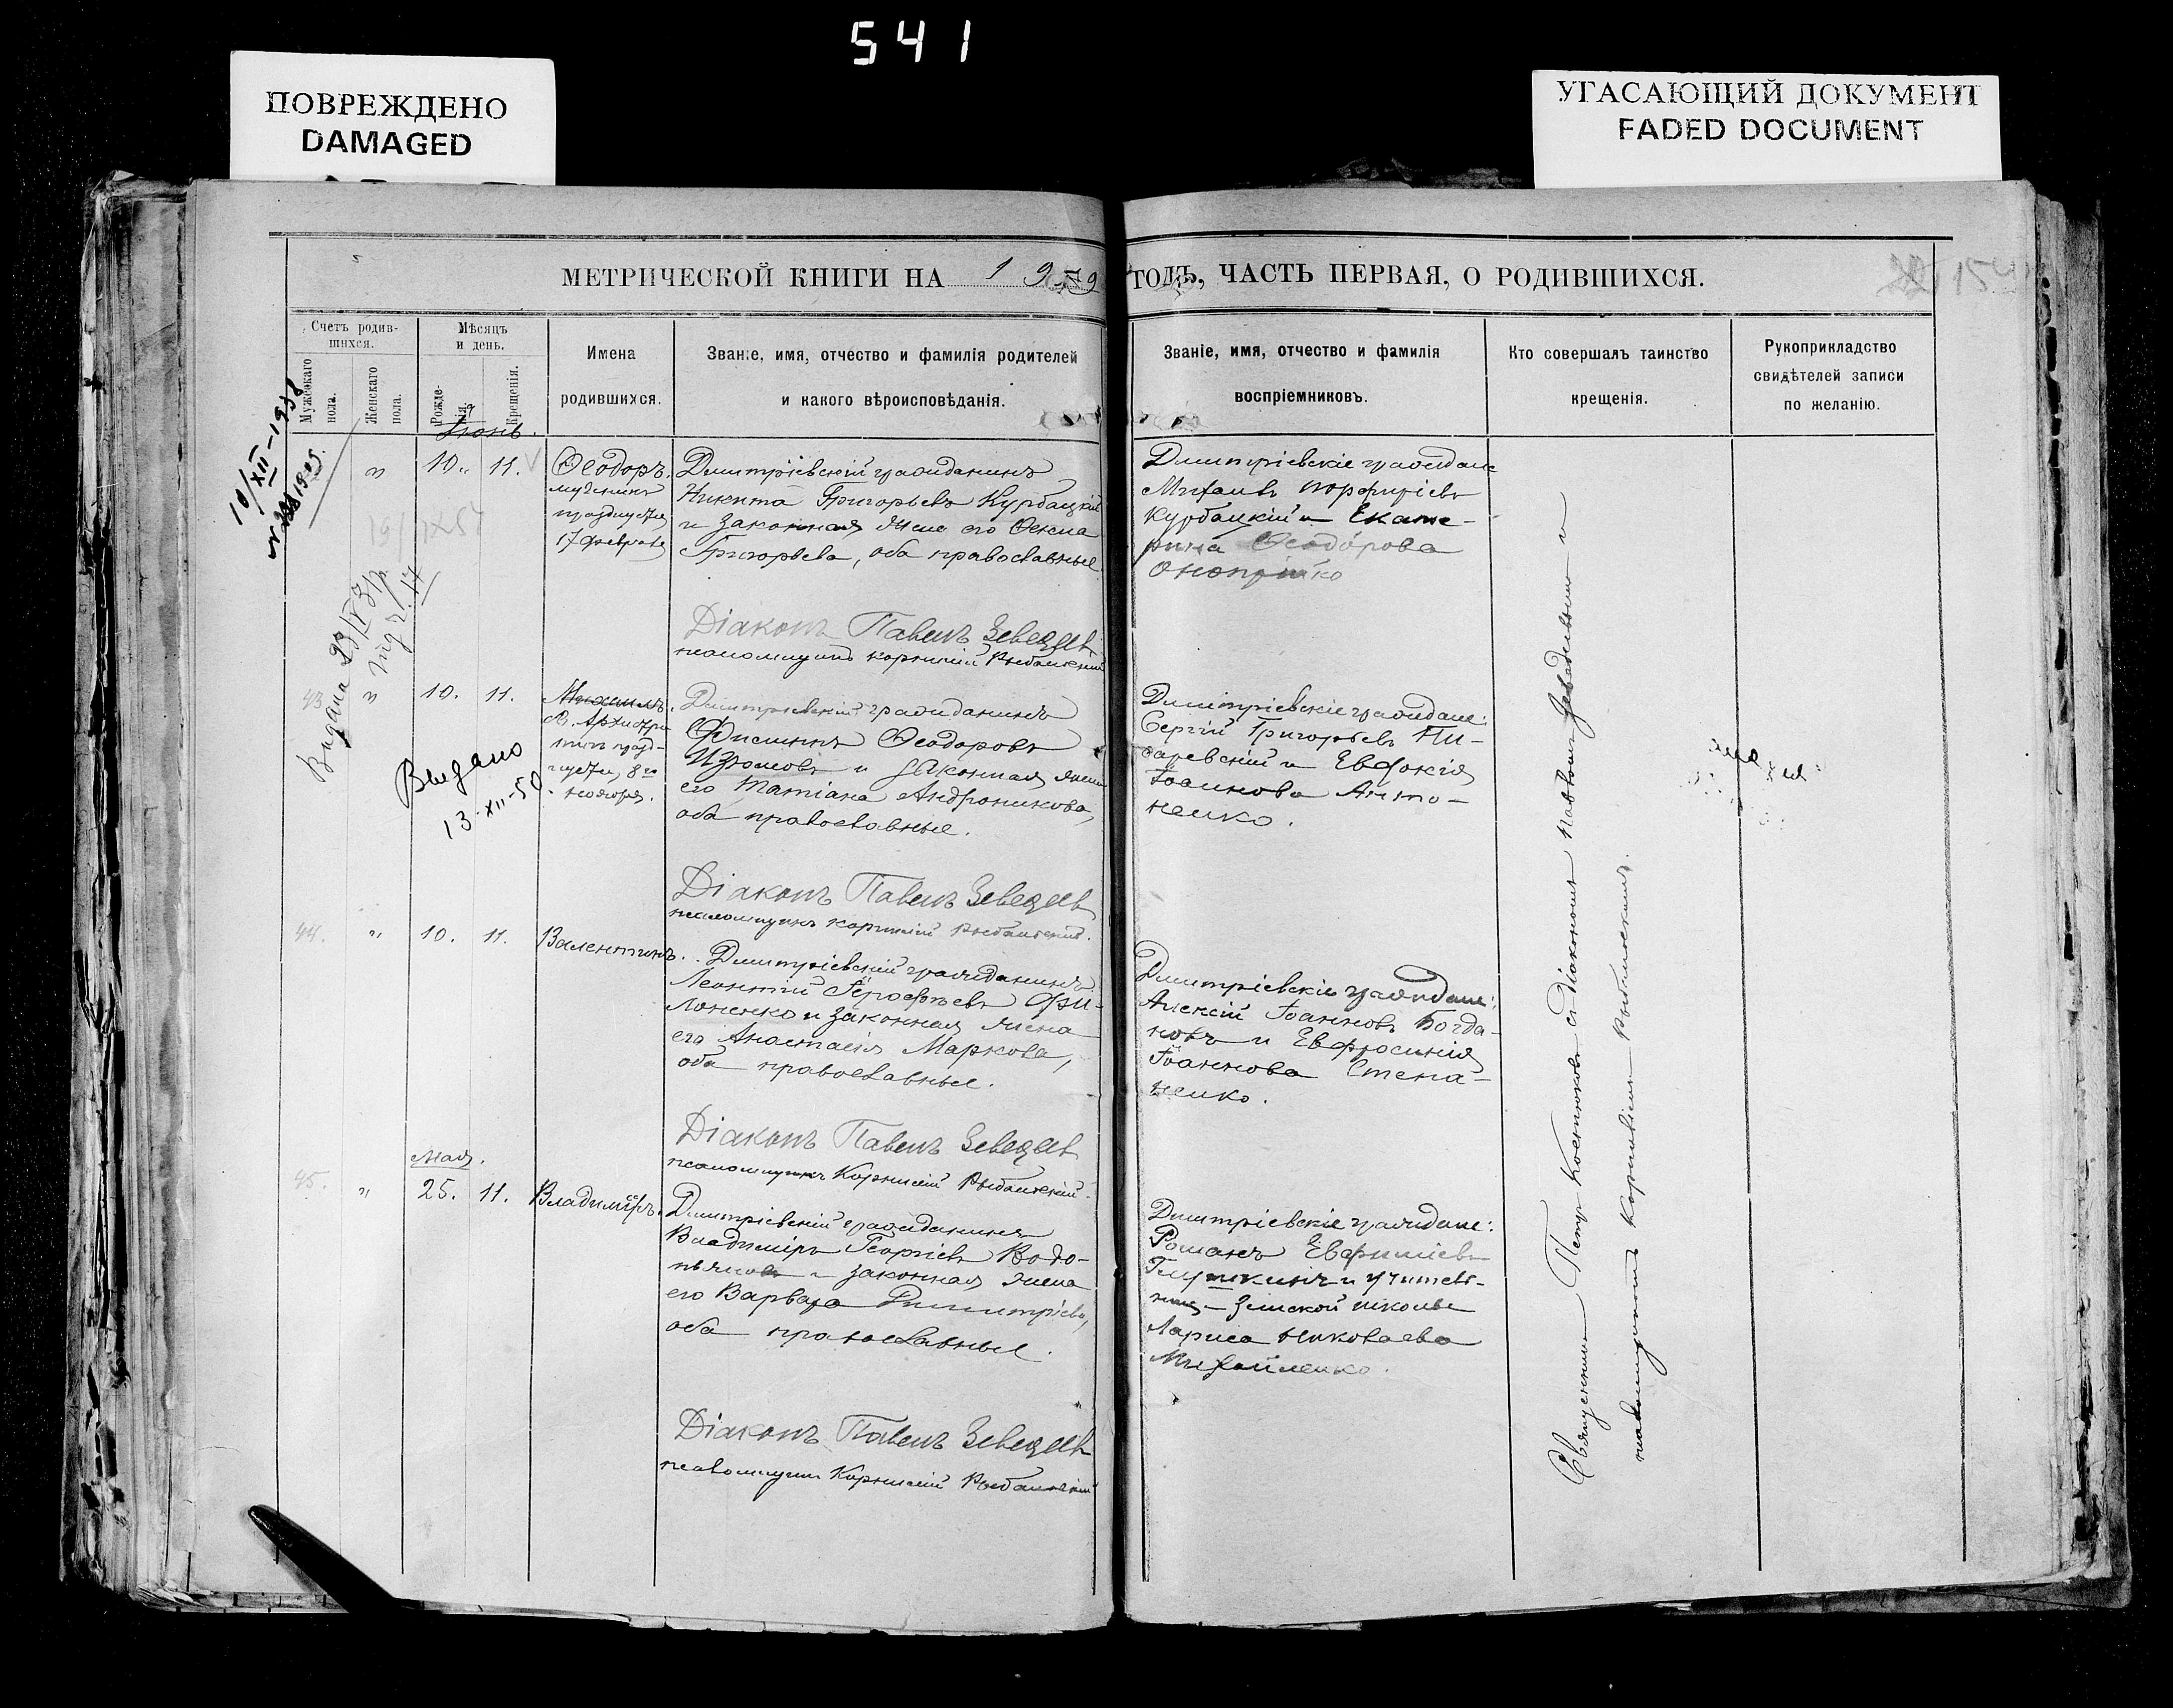 541
ПОВРЕЖДЕНО
DAMAGED
УГАСАЮЩИЙ ДОКУМЕНТ
FADED DOCUMENT
МЕТРИЧЕСКОЙ КНИГИ НА 19 ГОДЪ, ЧАСТЬ ПЕРВАЯ, О РОДИВШИХСЯ.
154
Счетъ родив-
шихся.
Мужескаго
пола.
Женскаго
пола.
Мѣсяцъ
и день.
Рожде-
нія.
Крещенія.
Имена
родившихся.
Званіе, имя, отчество и фамилія родителей
и какого вѣроисповѣданія.
Званіе, имя, отчество и фамилія
воспріемниковъ.
Кто совершалъ таинство
крещенія.
Рукоприкладство
свидѣтелей записи
по желанію.
10/XII-1958
Іюнь.
" 10. 11.
Ѳеодоръ.
мученикъ
празднуется
17 февраля
Димитріевскій гражданинъ
Никита Григорьевъ Курбацкій
и законная жена его Ѳекла
Григорьева, оба православные.
Діаконъ Павелъ Зеведеевъ
псаломщикъ Корнилій Рыбальскій
Димитріевскіе граждане
Михаилъ Порфиріевъ
Курбацкій и Екате-
рина Ѳеодорова
Онопрійко
19/IX54
Видана 23/IV 31р.
Выдано
13-XII-50
43 " 10. 11.
Михаилъ.
св. Архистра
тигъ празд-
нуется 8го
ноября.
Димитріевскій гражданинъ
Филиппъ Ѳеодоровъ
Изюмовъ и законная жена
его Татіана Андроникова,
оба православные.
Діаконъ Павелъ Зеведеевъ
псаломщикъ Корнилій Рыбальскій.
Димитріевскіе граждане:
Сергій Григорьевъ Пи-
саревскій и Евдокія
Іоаннова Анто-
ненко.
44. " 10. 11.
Валентинъ.
Димитріевскій гражданинъ
Леонтій Іероѳеевъ Фи-
лоненко и законная жена
его Анастасія Маркова,
оба православные.
Діаконъ Павелъ Зеведеевъ
псаломщикъ Корнилій Рыбальскій.
Димитріевскіе граждане:
Алексій Іоанновъ Богда-
новъ и Евфросинія
Іоаннова Степа-
ненко.
Мая.
45. " 25. 11.
Владиміръ.
Димитріевскій гражданинъ
Владиміръ Георгіевъ Водо-
пьяновъ и законная жена
его Варвара Димитріева,
оба православные.
Діаконъ Павелъ Зеведеевъ
псаломщикъ Корнилій Рыбальскій
Димитріевскіе граждане:
Романъ Евфиміевъ
и учитель-
ница Земской школы
Лариса Николаева
Михайленко.
Священникъ Петръ съ Діакономъ Павломъ Зеведеевымъ и
псаломщикомъ Корниліемъ Рыбальскимъ.